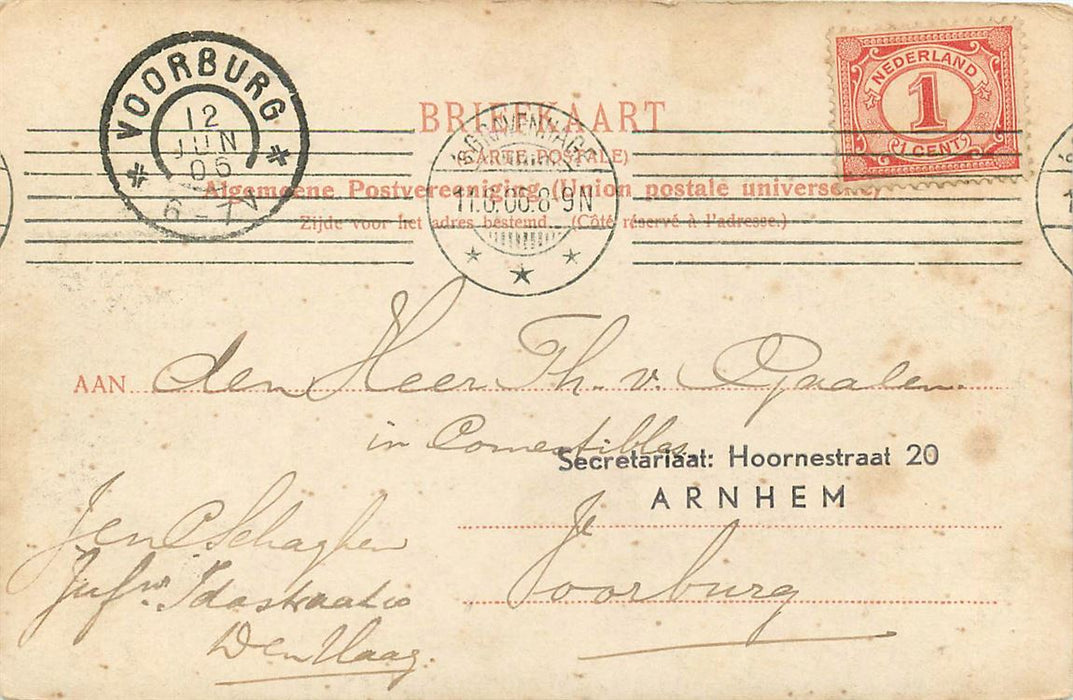 VOORBURG
12
JUN
06
6-7V
NEDERLAND
1
1 CENT
BRIEFKAART
(CARTE POSTALE)
Algemeene Postvereeniging (Union postale universelle)
Zijde voor het adres bestemd. (Côté réservé à l'adresse.)
'SGRAVENHAGE
11.6.06 8-9N
AAN den Heer Th. v. Gaalen.
in Comestibles.
Secretariaat: Hoornestraat 20
ARNHEM
Te
Voorburg
Jen C Schaghen
Jufr. Idastraat
Den Haag.